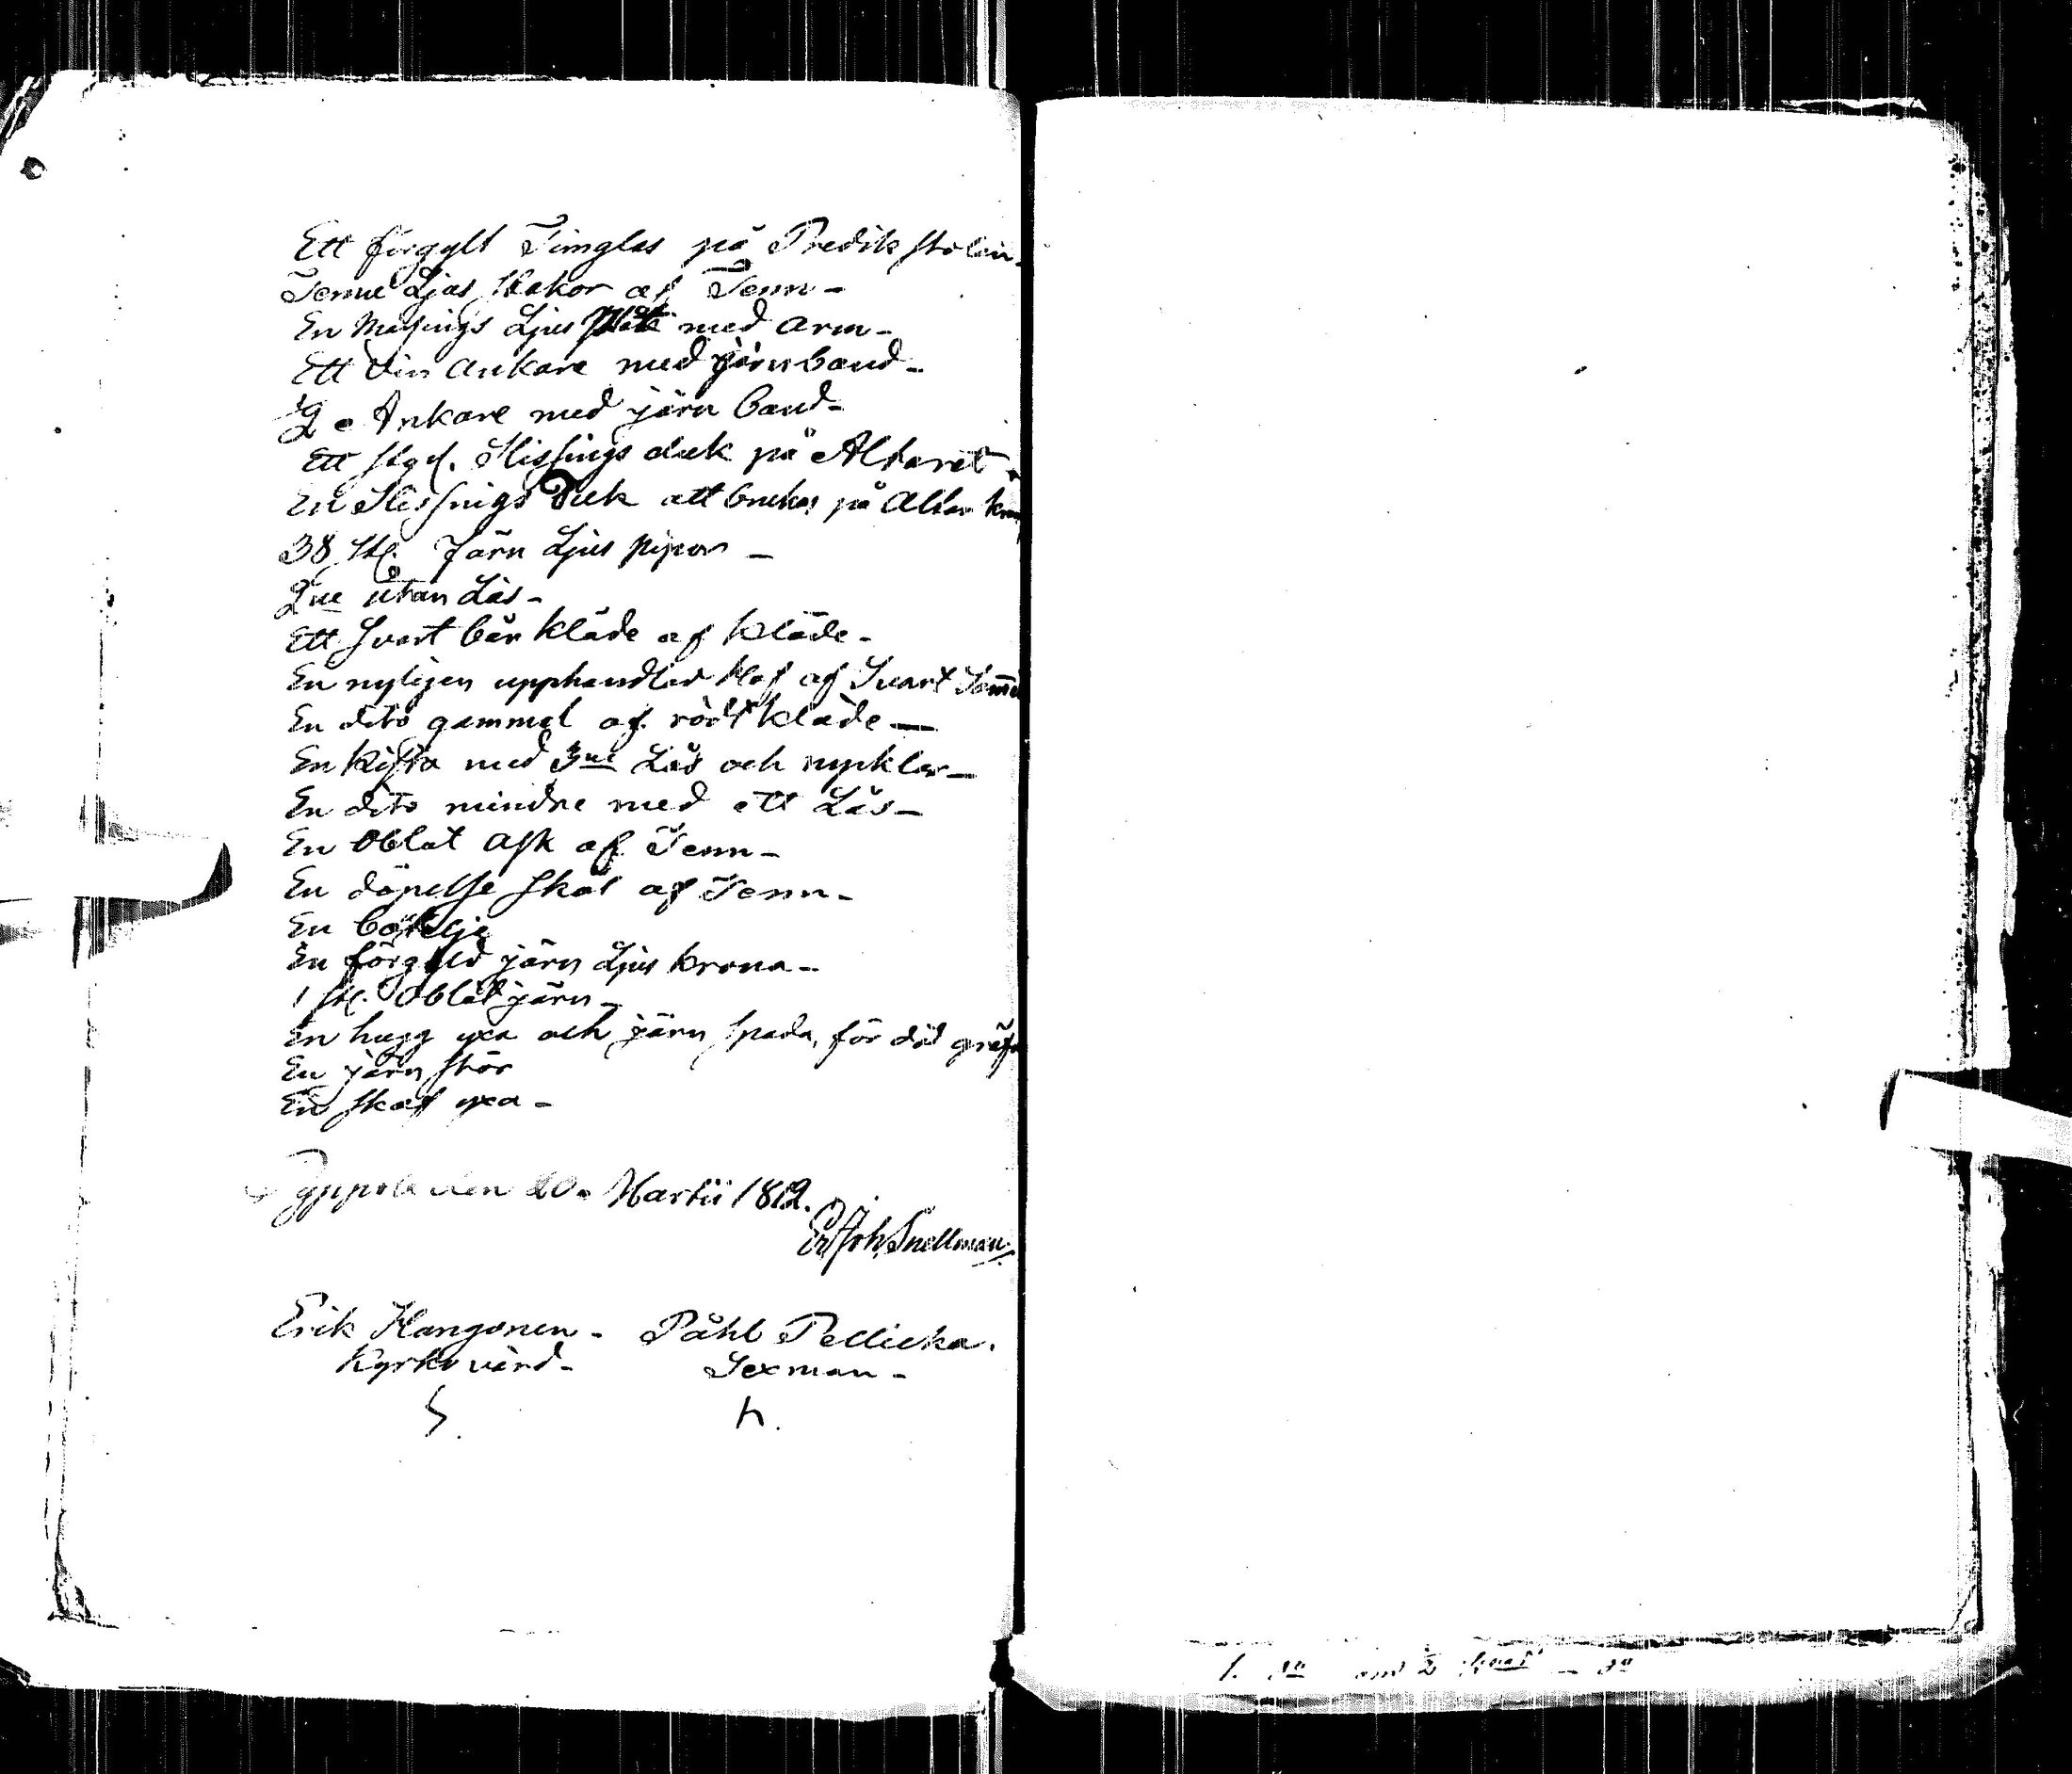 Ett förgylt Timglas på Predikstolen.
Tenne Ljus stakor af Tenn-
En Mässings Ljus Plåt med arm-
Ett Vin ankare med järnband-
2 Ankare med järn band-
Ett stycke Slissings duk på Altaret-
En Slissings Duk att brukas på Altar
38 st. Järn Ljus pipor -
2ne utan Lås-
Ett Svart bår kläde af kläde-
En nyligen upphandlad af Svart
En dito gammal af rödt kläde -
En kista med 3ne Lås och nycklar-
En dito mindre med ett Lås-
En Oblat Ask af Tenn-
En döpelse skål af Tenn-
En botelje
En förgyld järn Ljus krona-
1 st. Oblat järn-
En hugg yxa och järn spada, för död
En järn stör
En skaft yxa-
den 20. Martii 1812.
Joh. Snellman
Erik Kangonen - Påhl Pellicka.
Kyrkovärd- Sexman-